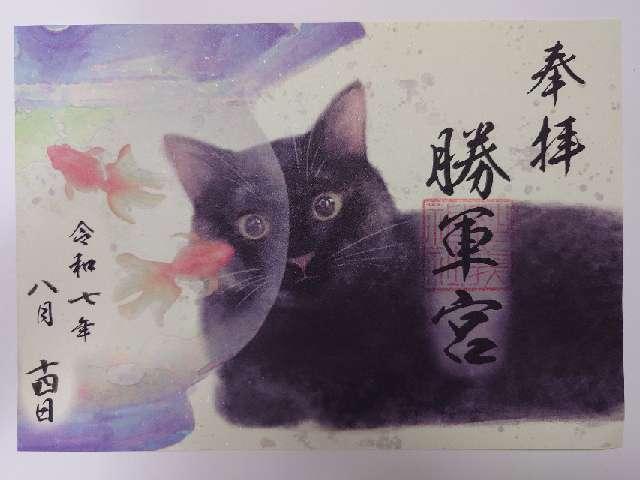 奉拝
勝軍宮
令和七年
八月
十四日